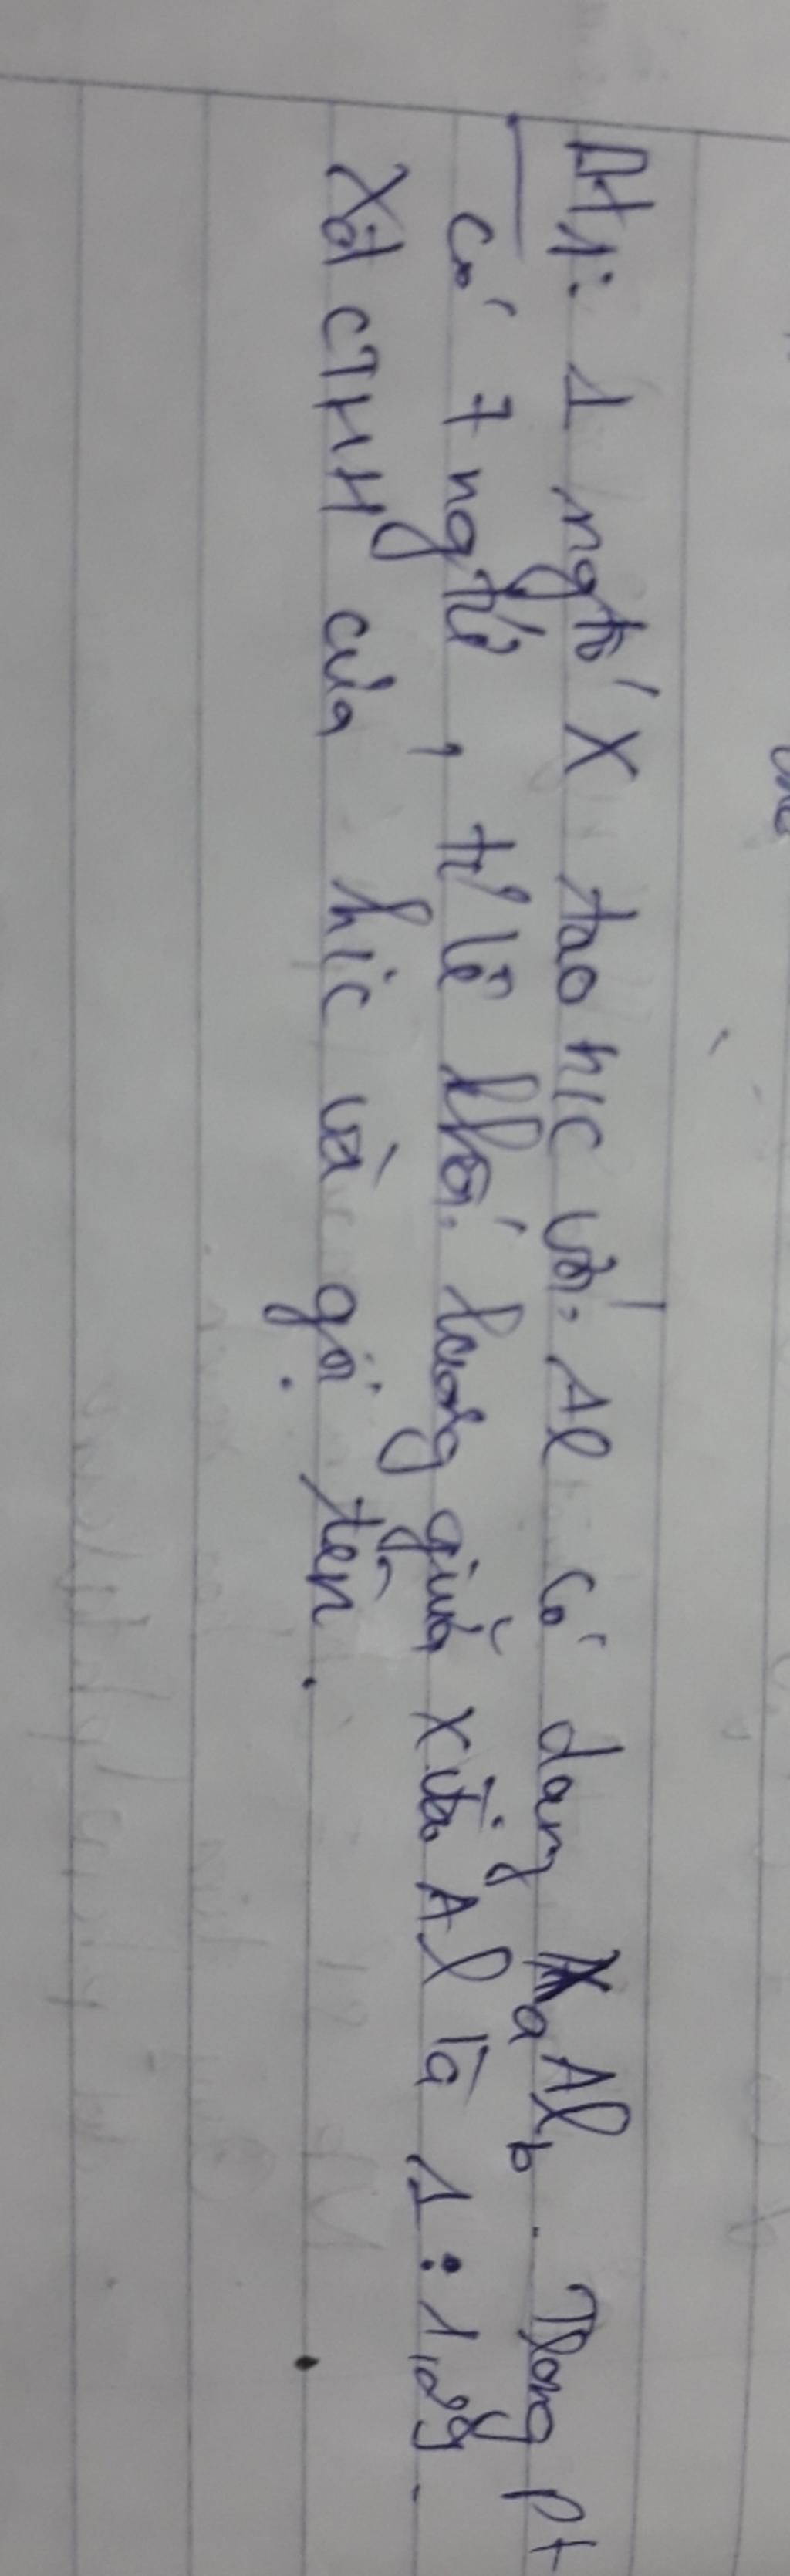 Bt1: 1 ngtố X tạo h/c với Al có dạng XaAlb. Trong pt
có 7 ngtử, tỉ lệ khối lượng giữa X và Al là 1:
Xđ CTHH của h/c và gọi tên.